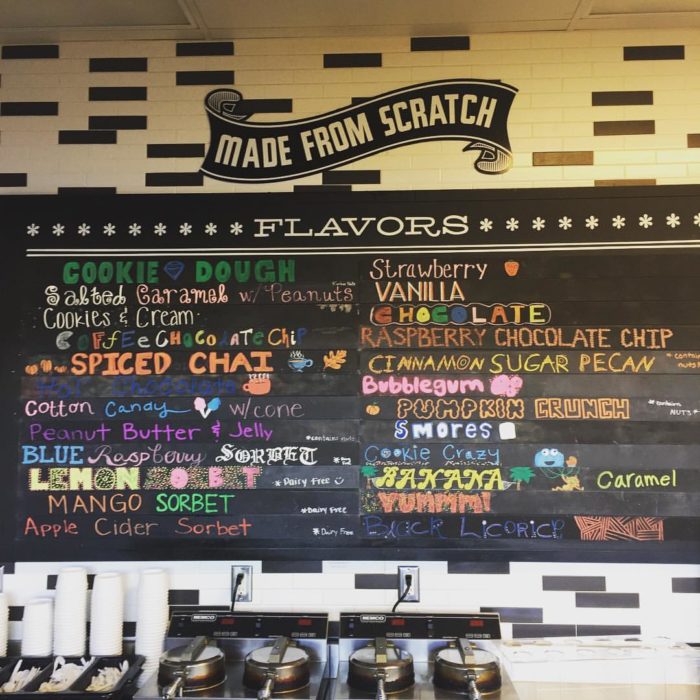 MADE FROM SCRATCH
FLAVORS
COOKIE DOUGH
Salted Caramel w/ Peanuts
Cookies & Cream
COFFEE CHOCOLATE CHIP
SPICED CHAI
Hot Chocolate
Cotton Candy w/cone
Peanut Butter & Jelly *contains nuts
BLUE Raspberry SORBET
LEMON SORBET *Dairy Free
MANGO SORBET *Dairy Free
Apple Cider Sorbet *Dairy Free
Strawberry
VANILLA
CHOCOLATE
RASPBERRY CHOCOLATE CHIP
CINNAMON SUGAR PECAN *contains nuts
Bubblegum
PUMPKIN CRUNCH *contains NUTS
SMORES
Cookie Crazy
BANANA Caramel
YUMMM!
Black Licorice
NEMCO
NEMCO